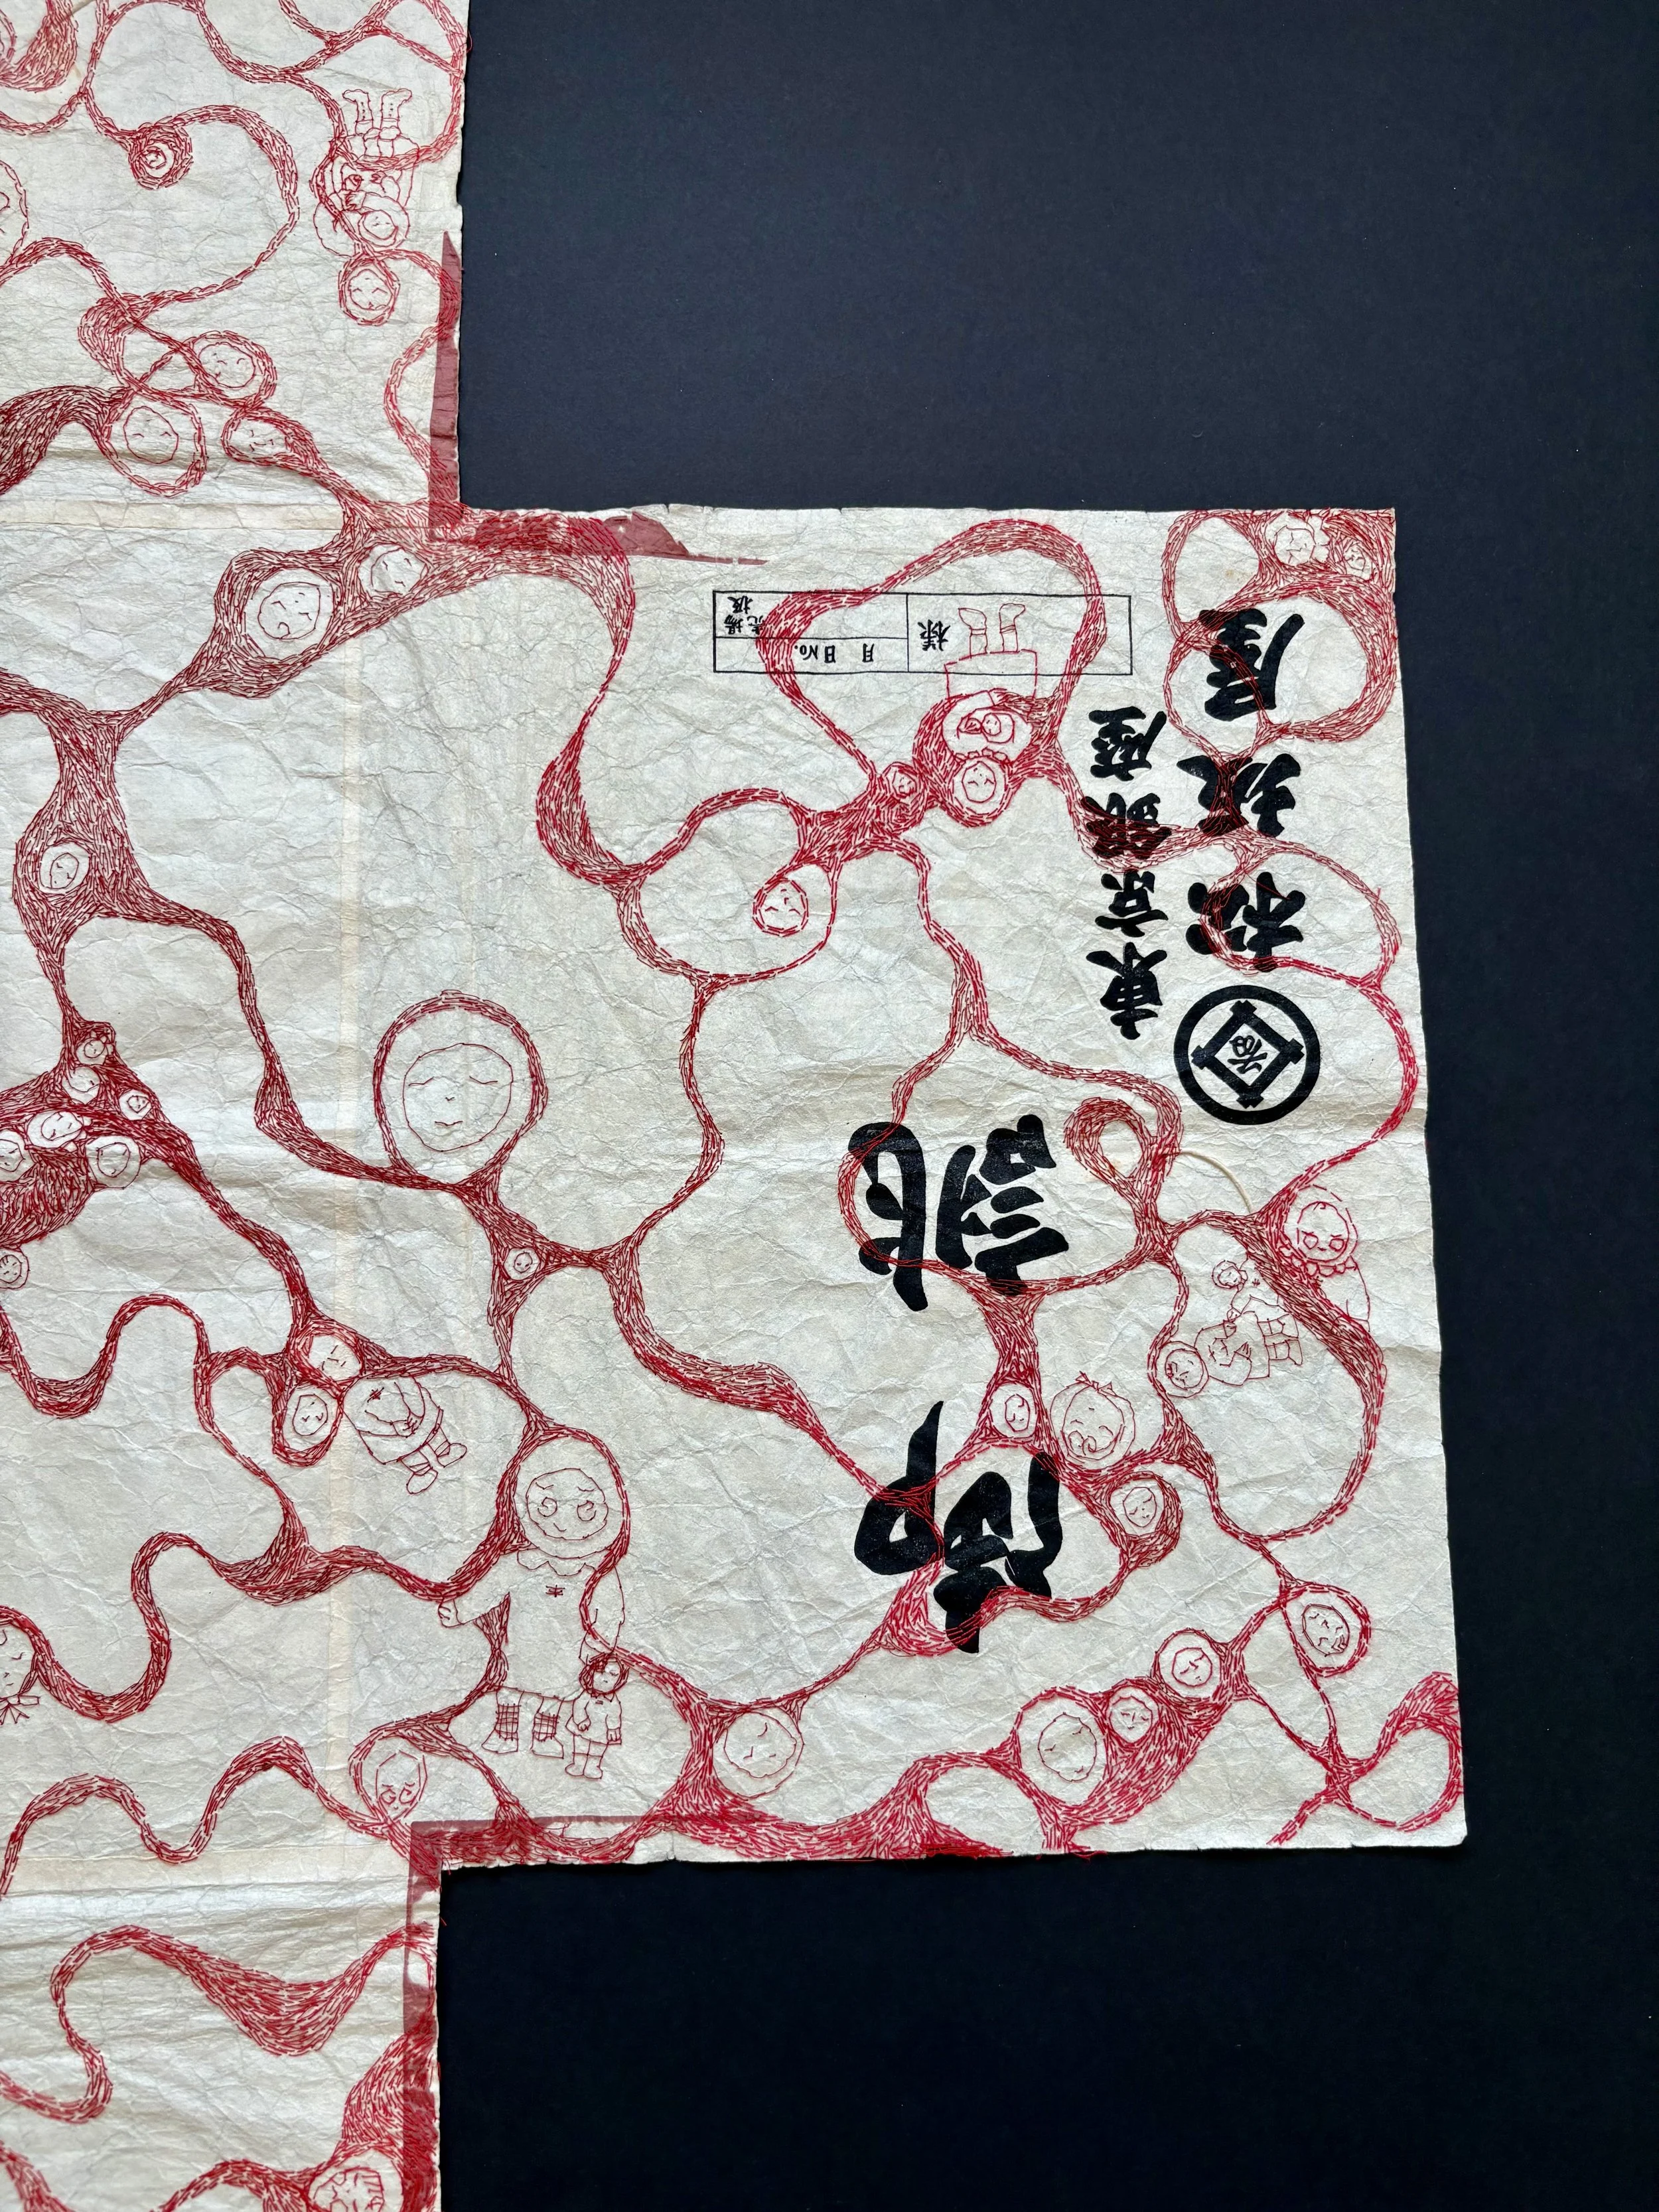 御誂
東京銀座
松坂屋
様
月 日 No.
売場扱